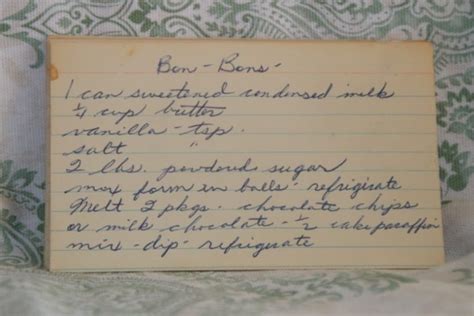 Bon - Bons -
1 can sweetened condensed milk
¼ cup butter
vanilla - tsp.
salt "
2 lbs. powdered sugar
mix form in balls - refrigirate
Melt 2 pkgs. chocolate chips
or milk chocolate - ½ cake paraffin
mix - dip - refrigirate